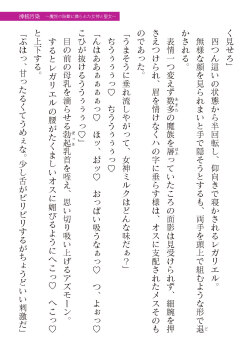 神核汚染 ～魔悦の陥落に捧ぐふた女神と聖女～
く見せろ」
四つん這いの状態から半回転し、仰向きで寝かされるレガリエル。
無様な顔を見られまいと手で隠そうとするも、両手を頭上で組むような形で退
かされる。
表情一つ変えず数多の魔族を屠っていたころの面影は見受けられず、細腕を押
さえつけられ、眉を情けなくハの字に垂らす様は、オスに支配されたメスそのも
のであった。
「うまそうに垂れ流しやがって、女神ミルクはどんな味だぁ？」
ぢうううぅぅっ♡　ぢううぅぅぅっ♡
「んはああぁぁっっ♡　ほッ、おッ♡　おっぱい吸うなぁっ♡　つ、よぉっ♡
こひが抜けるうううぅぅっ♡」
目の前の母乳を滴らせる勃起乳首を咥え、思い切り吸い上げるアズモーン。
するとレガリエルの腰がたくましいオスに媚びるようにへこっ♡　へこっ♡
と上下する。
「ぷはっ、甘ったるくてうめぇな。少し舌がピリピリするがちょうどいい刺激だ」